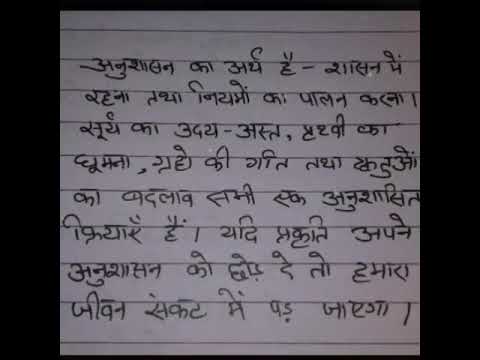 अनुशासन का अर्थ है - शासन में
रहना तथा नियमों का पालन करना।
सूर्य का उदय-अस्त, पृथ्वी का
घूमना, ग्रहो की गति तथा ऋतुओं
का बदलाव सभी एक अनुशासित
क्रियाएँ हैं। यदि प्रकृति अपने
अनुशासन को छोड़ दे तो हमारा
जीवन संकट में पड़ जाएगा।